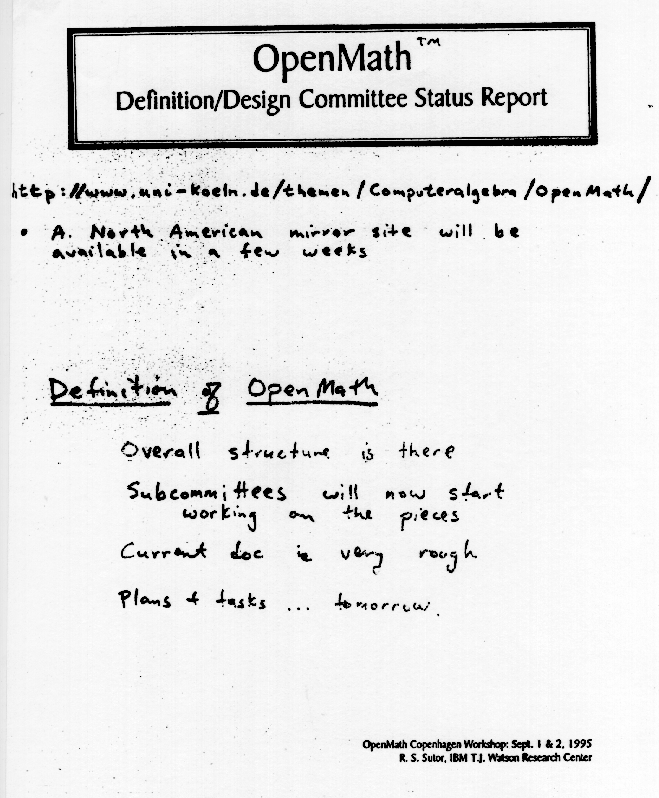 OpenMath™
Definition/Design Committee Status Report
http://www.uni-koeln.de/themen/Computeralgebra/OpenMath/
• A. North American mirror site will be
available in a few weeks
Definition of OpenMath
Overall structure is there
Subcommittees will now start
working on the pieces
Current doc is very rough
Plans & tasks ... tomorrow.
OpenMath Copenhagen Workshop: Sept. 1 & 2, 1995
R. S. Sutor, IBM T.J. Watson Research Center